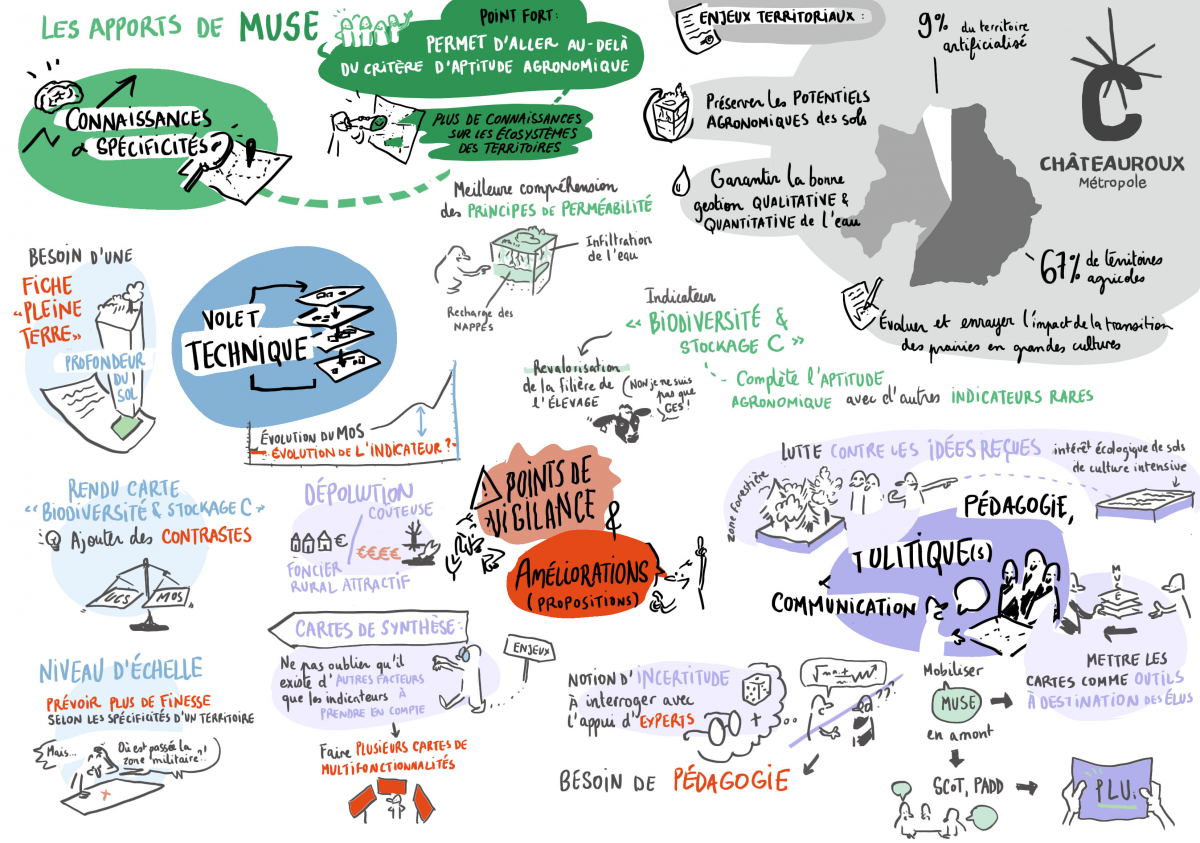 LES APPORTS DE MUSE
POINT FORT :
PERMET D'ALLER AU-DELÀ
DU CRITÈRE D'APTITUDE AGRONOMIQUE
CONNAISSANCES
& SPÉCIFICITÉS
PLUS DE CONNAISSANCES
SUR LES ÉCOSYSTÈMES
DES TERRITOIRES
ENJEUX TERRITORIAUX :
9% du territoire
artificialisé
Préserver les POTENTIELS
AGRONOMIQUES des sols
Garantir la bonne
gestion QUALITATIVE &
QUANTITATIVE de l'eau
C
CHÂTEAUROUX
Métropole
67% de térritoires
agricoles
Évaluer et enrayer l'impact de la transition
des prairies en grandes cultures
Meilleure compréhension
des PRINCIPES DE PERMÉABILITÉ
Infiltration
de l'eau
Recharge des
NAPPES
Indicateur
« BIODIVERSITÉ &
STOCKAGE C »
Revalorisation
de la filière de
l'ÉLEVAGE
(NON je ne suis
pas que
GES !)
- Complète l'APTITUDE
AGRONOMIQUE avec d'autres INDICATEURS RARES
BESOIN D'UNE
FICHE
"PLEINE
TERRE"
PROFONDEUR
DU
SOL
VOLET
TECHNIQUE
ÉVOLUTION DU MOS
ÉVOLUTION DE L'INDICATEUR ?
RENDU CARTE
"BIODIVERSITÉ & STOCKAGE C"
Ajouter des CONTRASTES
UCS
MOS
DÉPOLUTION
COÛTEUSE
€
€€€€
FONCIER
RURAL ATTRACTIF
POINTS DE
VIGILANCE
&
AMÉLIORATIONS
(PROPOSITIONS)
LUTTE CONTRE LES IDÉES REÇUES
zone forestière
intérêt écologique de sols
de culture intensive
PÉDAGOGIE,
POLITIQUE(S)
COMMUNICATION
MUSE
METTRE LES
CARTES COMME OUTILS
À DESTINATION DES ÉLUS
NIVEAU D'ÉCHELLE
PRÉVOIR PLUS DE FINESSE
SELON LES SPÉCIFICITÉS D'UN TERRITOIRE
Mais...
Où est passée la
zone militaire ?!
CARTES DE SYNTHÈSE :
Ne pas oublier qu'il
existe d'AUTRES FACTEURS
que les indicateurs À
PRENDRE EN COMPTE
ENJEUX
Faire PLUSIEURS CARTES DE
MULTIFONCTIONNALITÉS
NOTION D'INCERTITUDE
à interroger avec
l'appui d'EXPERTS
+
???
BESOIN DE PÉDAGOGIE
Mobiliser
MUSE
en amont
SCOT, PADD
PLU.